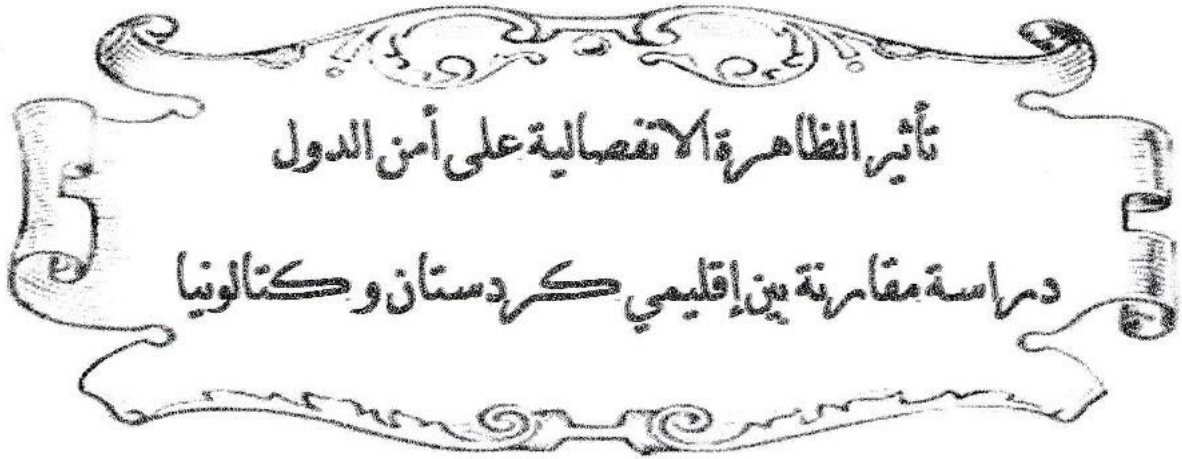 تأثير الظاهرة الانفصالية على أمن الدول
دراسة مقارنة بين إقليمي كردستان وكتالونيا